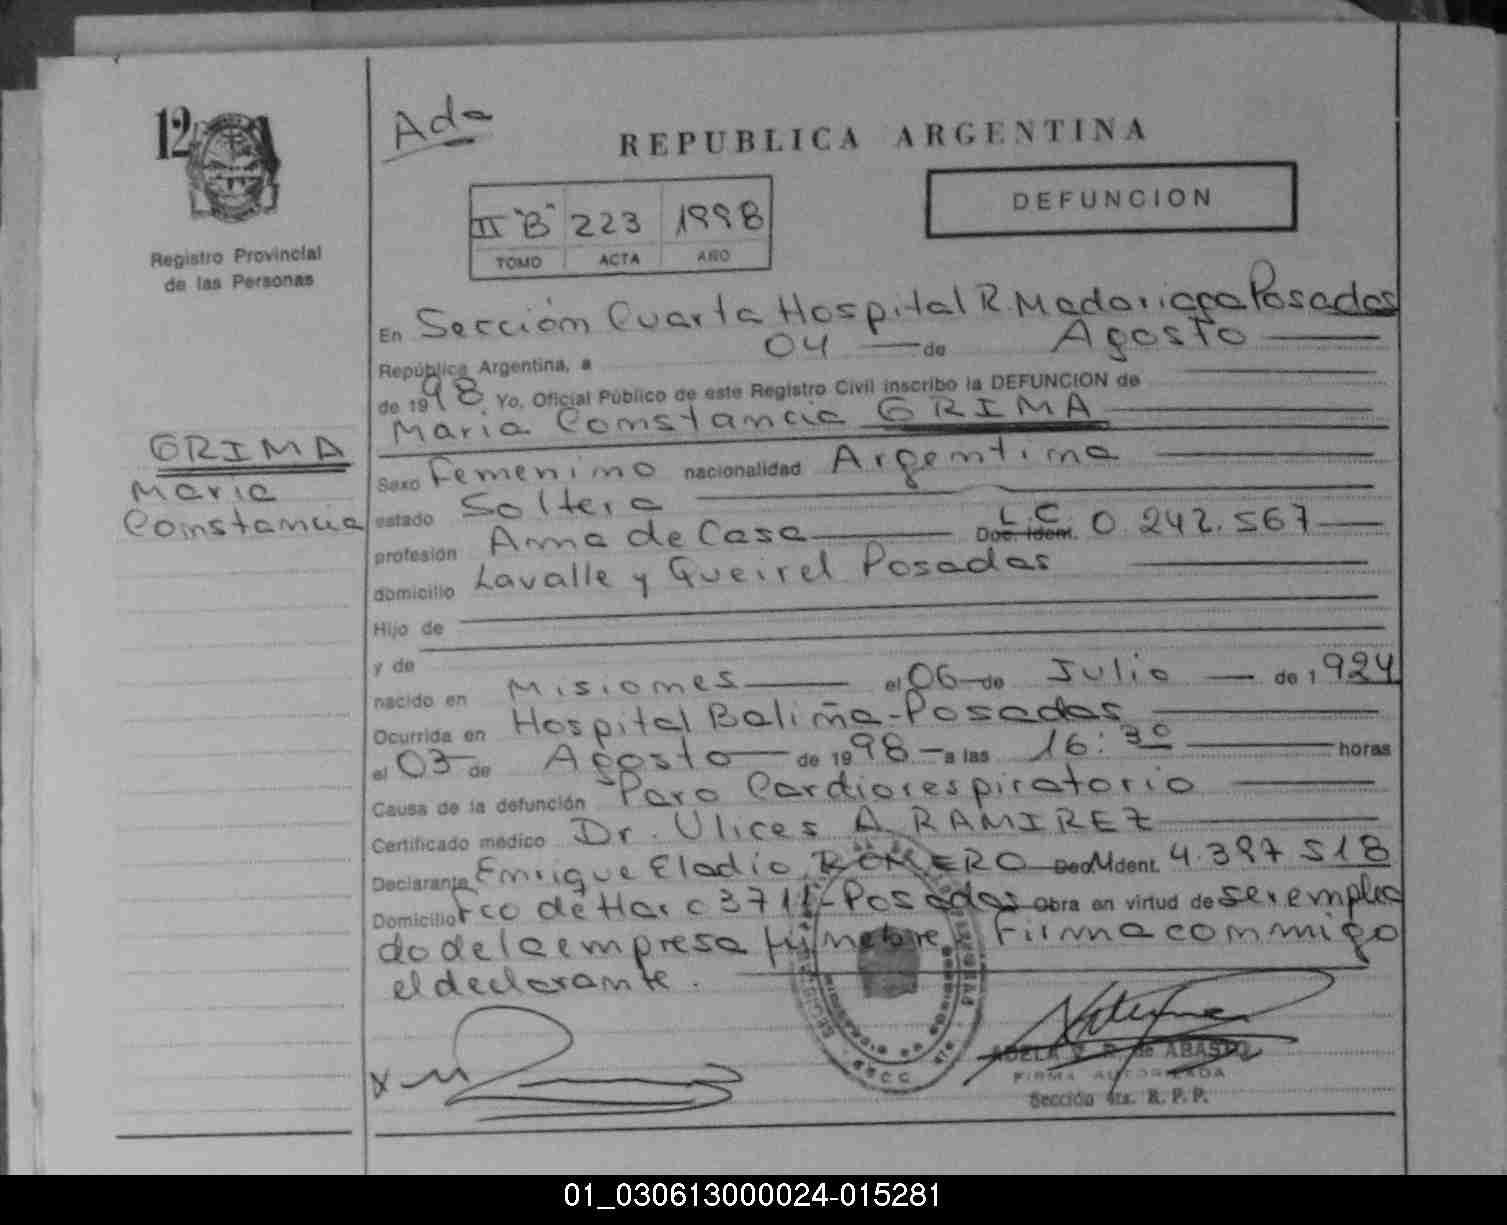 12
Registro Provincial
de las Personas
Ada
REPUBLICA ARGENTINA
II "B" 223 1998
TOMO ACTA AÑO
DEFUNCION
En Sección Cuarta Hospital R. Madariaga Posadas
República Argentina, a 04 de Agosto
de 1998. Yo, Oficial Público de este Registro Civil inscribo la DEFUNCION de
Maria Constancia GRIMA
GRIMA
Maria
Constancia
Sexo Femenino nacionalidad Argentina
estado Soltera
profesión Ama de Casa L.C. Doc. Ident. 0.242.567
domicilio Lavalle y Queirel Posadas
Hijo de
y de
nacido en Misiones el 06 de Julio de 1924
Ocurrida en Hospital Baliña-Posadas
el 03 de Agosto de 1998 a las 16:30 horas
Causa de la defunción Paro Cardiorespiratorio
Certificado médico Dr. Ulices A. RAMIREZ
Declarante Enrique Eladio ROMERO Ident. 4.397.518
Domicilio de Haro 3711-Posadas Obra en virtud de ser emplea
do de la empresa funebre Firma conmigo
el declarante.
ADELA de ABASTO
FIRMA AUTORIZADA
Sección 4ta. R. P. P.
01_030613000024-015281